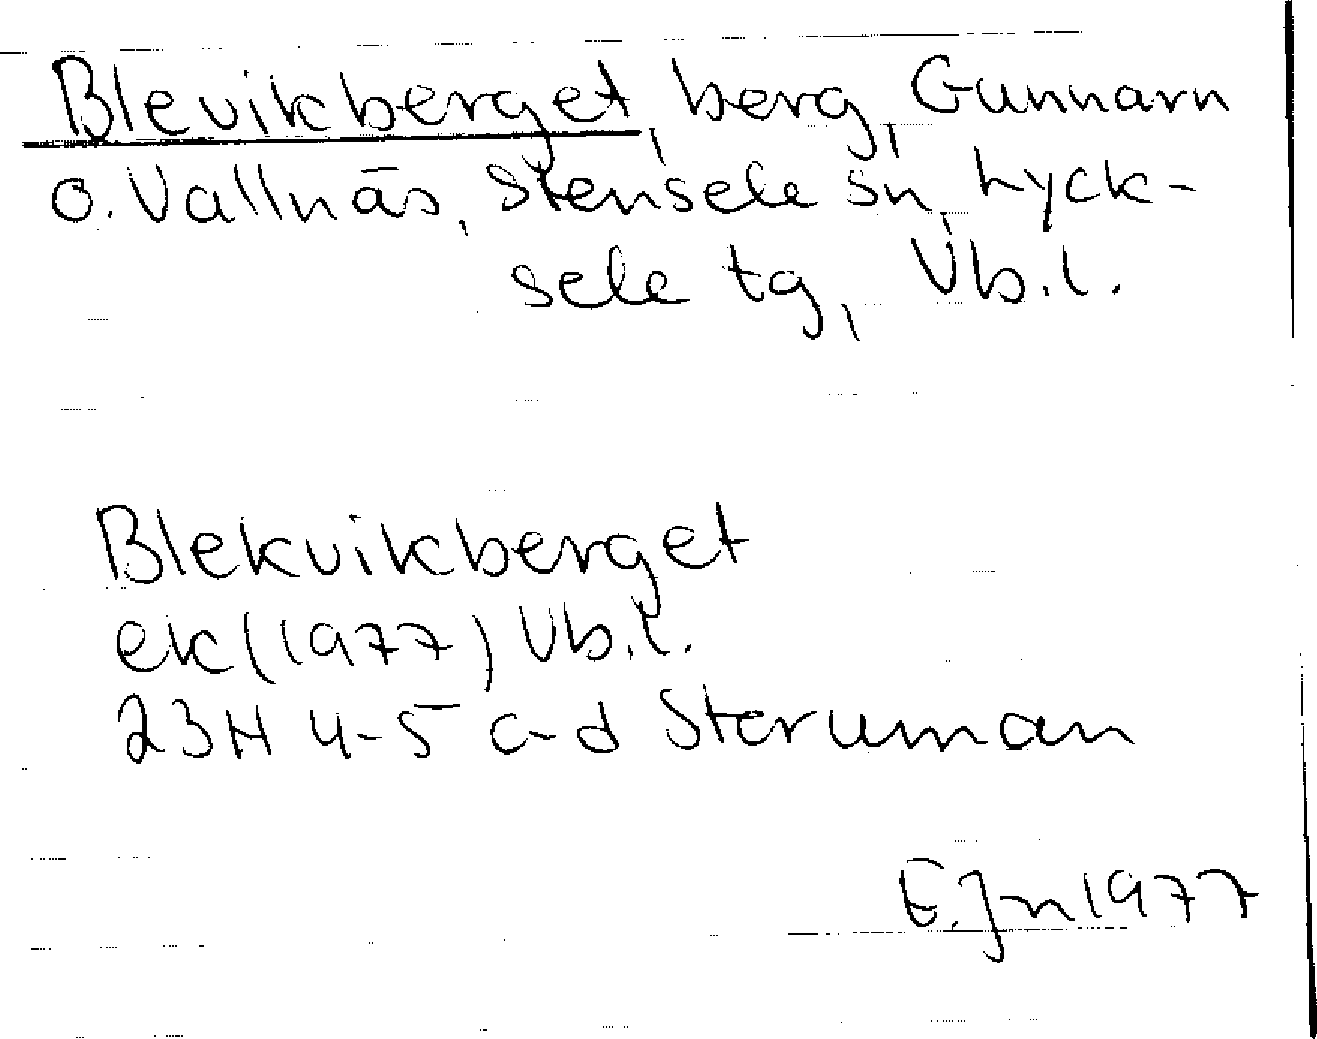 Blevikberget, berg, Gunnarn
o. Vallnäs, Stensele sn, Lyck-
sele tg, Vb.l.
Blekvikberget
ek (1977) Vb.l.
23H 4-5 c-d Storuman
E.Jn 1977